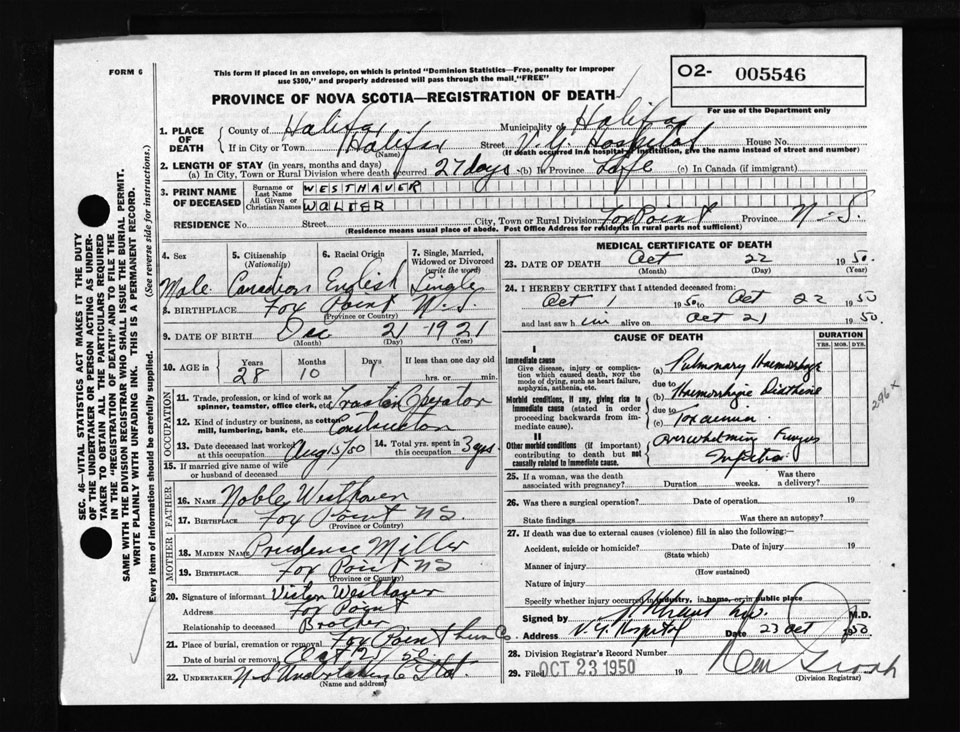 FORM 6
This form if placed in an envelope, on which is printed "Dominion Statistics—Free, penalty for improper
use $300," and properly addressed will pass through the mail "FREE"
O2- 005546
For use of the Department only
PROVINCE OF NOVA SCOTIA—REGISTRATION OF DEATH
1. PLACE OF DEATH
County of Halifax Municipality of Halifax
If in City or Town Halifax Street V.G. Hospital House No.
(Name) (If death occurred in a hospital or institution, give the name instead of street and number)
2. LENGTH OF STAY (in years, months and days)
(a) In City, Town or Rural Division where death occurred 27 days (b) In Province Life (c) In Canada (if immigrant)
3. PRINT NAME OF DECEASED
Surname or Last Name WESTHAVER
All Given or Christian Names WALTER
RESIDENCE No. Street City, Town or Rural Division Fox Point Province N.S.
(Residence means usual place of abode. Post Office Address for residents in rural parts not sufficient)
4. Sex 5. Citizenship (Nationality) 6. Racial Origin 7. Single, Married, Widowed or Divorced (write the word)
Male Canadian English Single
8. BIRTHPLACE Fox Point N.S.
(Province or Country)
9. DATE OF BIRTH Dec 21 1921
(Month) (Day) (Year)
10. AGE in Years Months Days If less than one day old
28 10 1 hrs. or min.
OCCUPATION
11. Trade, profession, or kind of work as spinner, teamster, office clerk, etc. Tractor Operator
12. Kind of industry or business, as cotton mill, lumbering, bank, etc. Construction
13. Date deceased last worked at this occupation Aug 15/50 14. Total yrs. spent in this occupation 3 yrs.
15. If married give name of wife or husband of deceased
FATHER
16. NAME Noble Westhaver
17. BIRTHPLACE Fox Point NS.
(Province or Country)
MOTHER
18. MAIDEN NAME Prudence Miller
19. BIRTHPLACE Fox Point NS
(Province or Country)
20. Signature of informant Victor Westhaver
Address Fox Point
Relationship to deceased Brother
21. Place of burial, cremation or removal Fox Point Lun Co.
Date of burial or removal Oct 50
22. UNDERTAKER N.S. Undertaking Co Ltd.
(Name and address)
MEDICAL CERTIFICATE OF DEATH
23. DATE OF DEATH Oct 22 1950.
(Month) (Day) (Year)
24. I HEREBY CERTIFY that I attended deceased from:
Oct 1 1950 to Oct 22 1950
and last saw him alive on Oct 21 1950.
CAUSE OF DEATH
DURATION
YRS. MOS. DYS.
I
Immediate cause
Give disease, injury or complication which caused death, NOT the mode of dying, such as heart failure, asphyxia, asthenia, etc.
(a) Pulmonary Haemorrhage
due to
Morbid conditions, if any, giving rise to immediate cause (stated in order proceeding backwards from immediate cause).
(b) Haemorrhagic Diathesis
due to
(c) Toxaemia
II
Other morbid conditions (if important) contributing to death but not causally related to immediate cause.
Overwhelming Fungus
Infection
296 x
25. If a woman, was the death associated with pregnancy? Duration weeks. Was there a delivery?
26. Was there a surgical operation? Date of operation 19
State findings Was there an autopsy?
27. If death was due to external causes (violence) fill in also the following:
Accident, suicide or homicide? Date of injury 19
(State which)
Manner of injury
(How sustained)
Nature of injury
Specify whether injury occurred in industry, in home, or in public place
Signed by M.D.
Address V.G. Hospital Date 23 Oct 1950
28. Division Registrar's Record Number
29. Filed OCT 23 1950 19
(Division Registrar)
SEC. 46—VITAL STATISTICS ACT MAKES IT THE DUTY
OF THE UNDERTAKER OR PERSON ACTING AS UNDER-
TAKER TO OBTAIN ALL THE PARTICULARS REQUIRED
IN THE "REGISTRATION OF DEATH" AND TO FILE THE
SAME WITH THE DIVISION REGISTRAR WHO SHALL ISSUE THE BURIAL PERMIT.
WRITE PLAINLY WITH UNFADING INK. THIS IS A PERMANENT RECORD.
Every item of information should be carefully supplied. (See reverse side for instructions.)